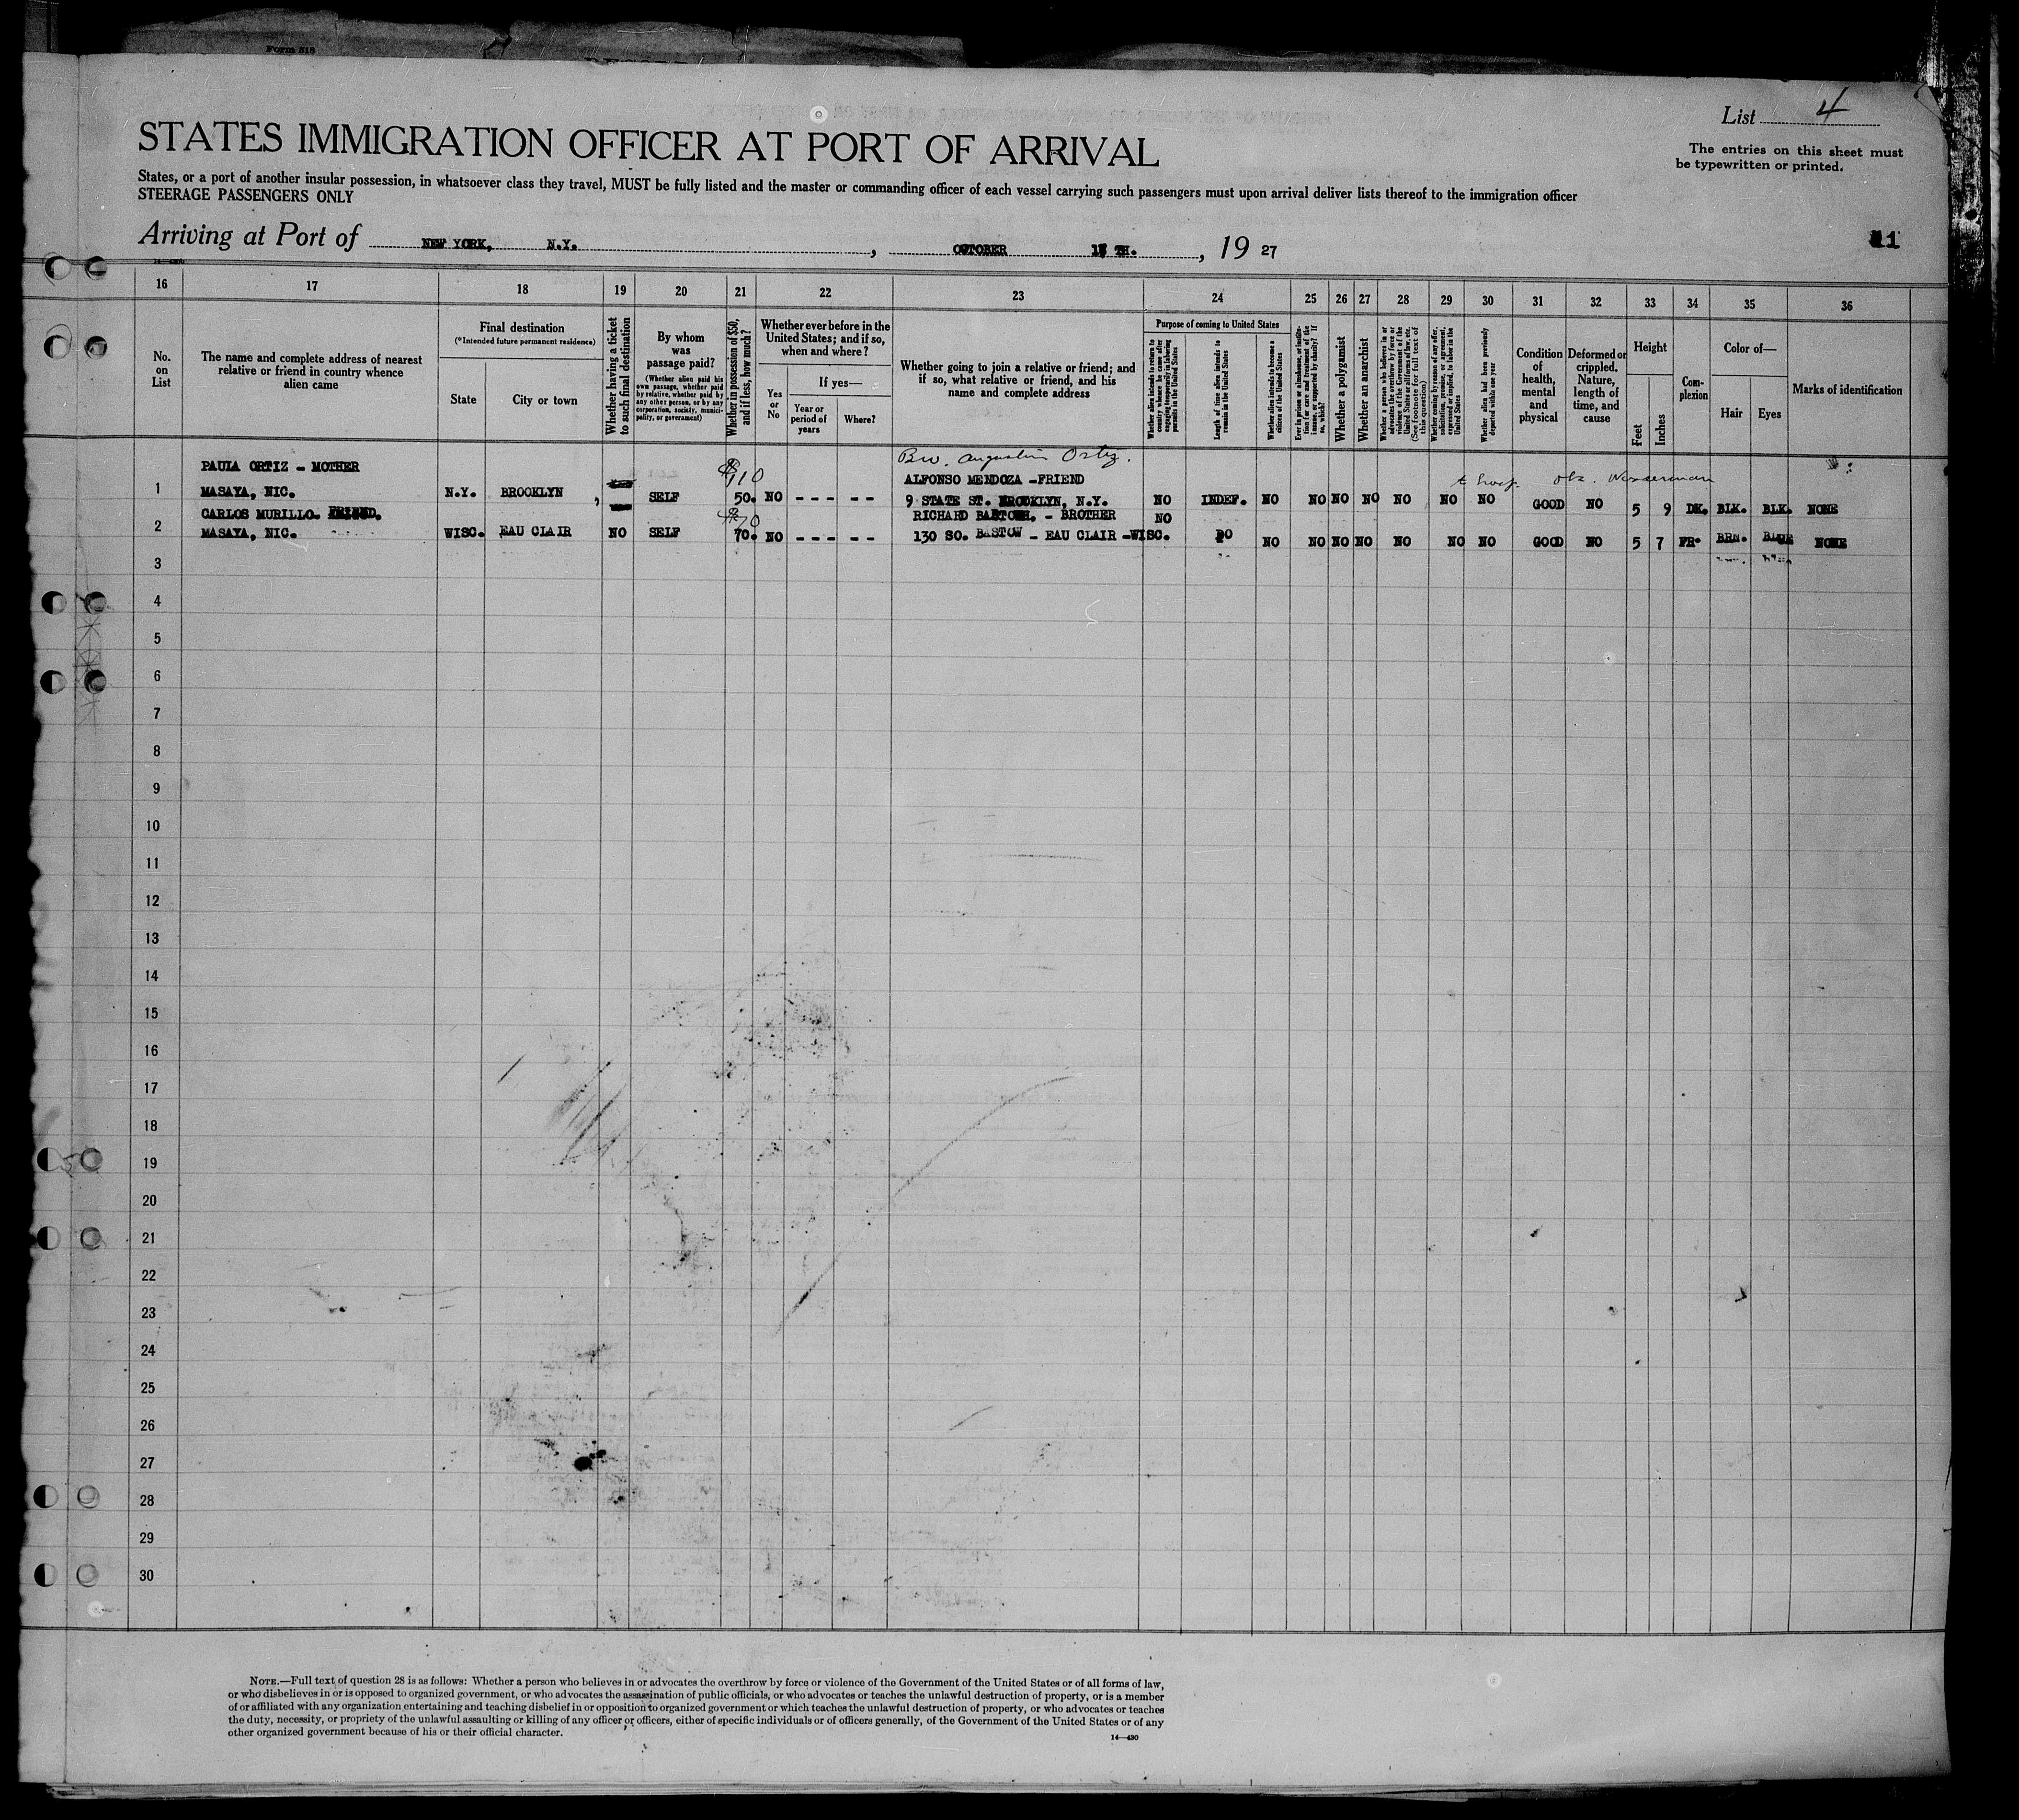 Form 518
List 4
STATES IMMIGRATION OFFICER AT PORT OF ARRIVAL
The entries on this sheet must
be typewritten or printed.
States, or a port of another insular possession, in whatsoever class they travel, MUST be fully listed and the master or commanding officer of each vessel carrying such passengers must upon arrival deliver lists thereof to the immigration officer
STEERAGE PASSENGERS ONLY
Arriving at Port of NEW YORK, N.Y. , OCTOBER TH. , 19 27
11
16 17 18 19 20 21 22 23 24 25 26 27 28 29 30 31 32 33 34 35 36
No.
on
List
The name and complete address of nearest
relative or friend in country whence
alien came
Final destination
(*Intended future permanent residence)
State
City or town
Whether having a ticket
to such final destination
By whom
was
passage paid?
(Whether alien paid his
own passage, whether paid
by relative, whether paid by
any other person, or by any
corporation, society, munici-
pality, or government)
Whether in possession of $50,
and if less, how much?
Whether ever before in the
United States; and if so,
when and where?
Yes
or
No
If yes—
Year or
period of
years
Where?
Whether going to join a relative or friend; and
if so, what relative or friend, and his
name and complete address
Purpose of coming to United States
Whether alien intends to return to
country whence he came after
engaging temporarily in laboring
pursuits in the United States
Length of time alien intends to
remain in the United States
Whether alien intends to become a
citizen of the United States
Ever in prison or almshouse, or institu-
tion for care and treatment of the
insane, or supported by charity? If
so, which?
Whether a polygamist
Whether an anarchist
Whether a person who believes in or
advocates the overthrow by force or
violence of the Government of the
United States or all forms of law, etc.
(See footnote for full text of
this question)
Whether coming by reason of any offer,
solicitation, promise, or agreement,
expressed or implied, to labor in the
United States
Whether alien had been previously
deported within one year
Condition
of
health,
mental
and
physical
Deformed or
crippled.
Nature,
length of
time, and
cause
Height
Feet
Inches
Com-
plexion
Color of—
Hair
Eyes
Marks of identification
Augustin Ortiz.
PAULA ORTIZ - MOTHER $10 ALFONSO MENDOZA -FRIEND
1 MASAYA, NIC. N.Y. BROOKLYN , SELF 50. NO - - - - - 9 STATE ST. BROOKLYN, N.Y. NO INDEF. NO NO NO NO NO NO NO GOOD NO 5 9 DK. BLK. BLK. NONE
CARLOS MURILLO. FRIEND. $70 RICHARD - BROTHER NO
2 MASAYA, NIC. WISC. EAU CLAIR NO SELF 70. NO - - - - - 130 SO. BASTOW - EAU CLAIR -WISC. DO NO NO NO NO NO NO NO GOOD NO 5 7 FR. BRN. BLUE NONE
3
4
5
6
7
8
9
10
11
12
13
14
15
16
17
18
19
20
21
22
23
24
25
26
27
28
29
30
NOTE.—Full text of question 28 is as follows: Whether a person who believes in or advocates the overthrow by force or violence of the Government of the United States or of all forms of law,
or who disbelieves in or is opposed to organized government, or who advocates the assassination of public officials, or who advocates or teaches the unlawful destruction of property, or is a member
of or affiliated with any organization entertaining and teaching disbelief in or opposition to organized government or which teaches the unlawful destruction of property, or who advocates or teaches
the duty, necessity, or propriety of the unlawful assaulting or killing of any officer or officers, either of specific individuals or of officers generally, of the Government of the United States or of any
other organized government because of his or their official character.
14—430